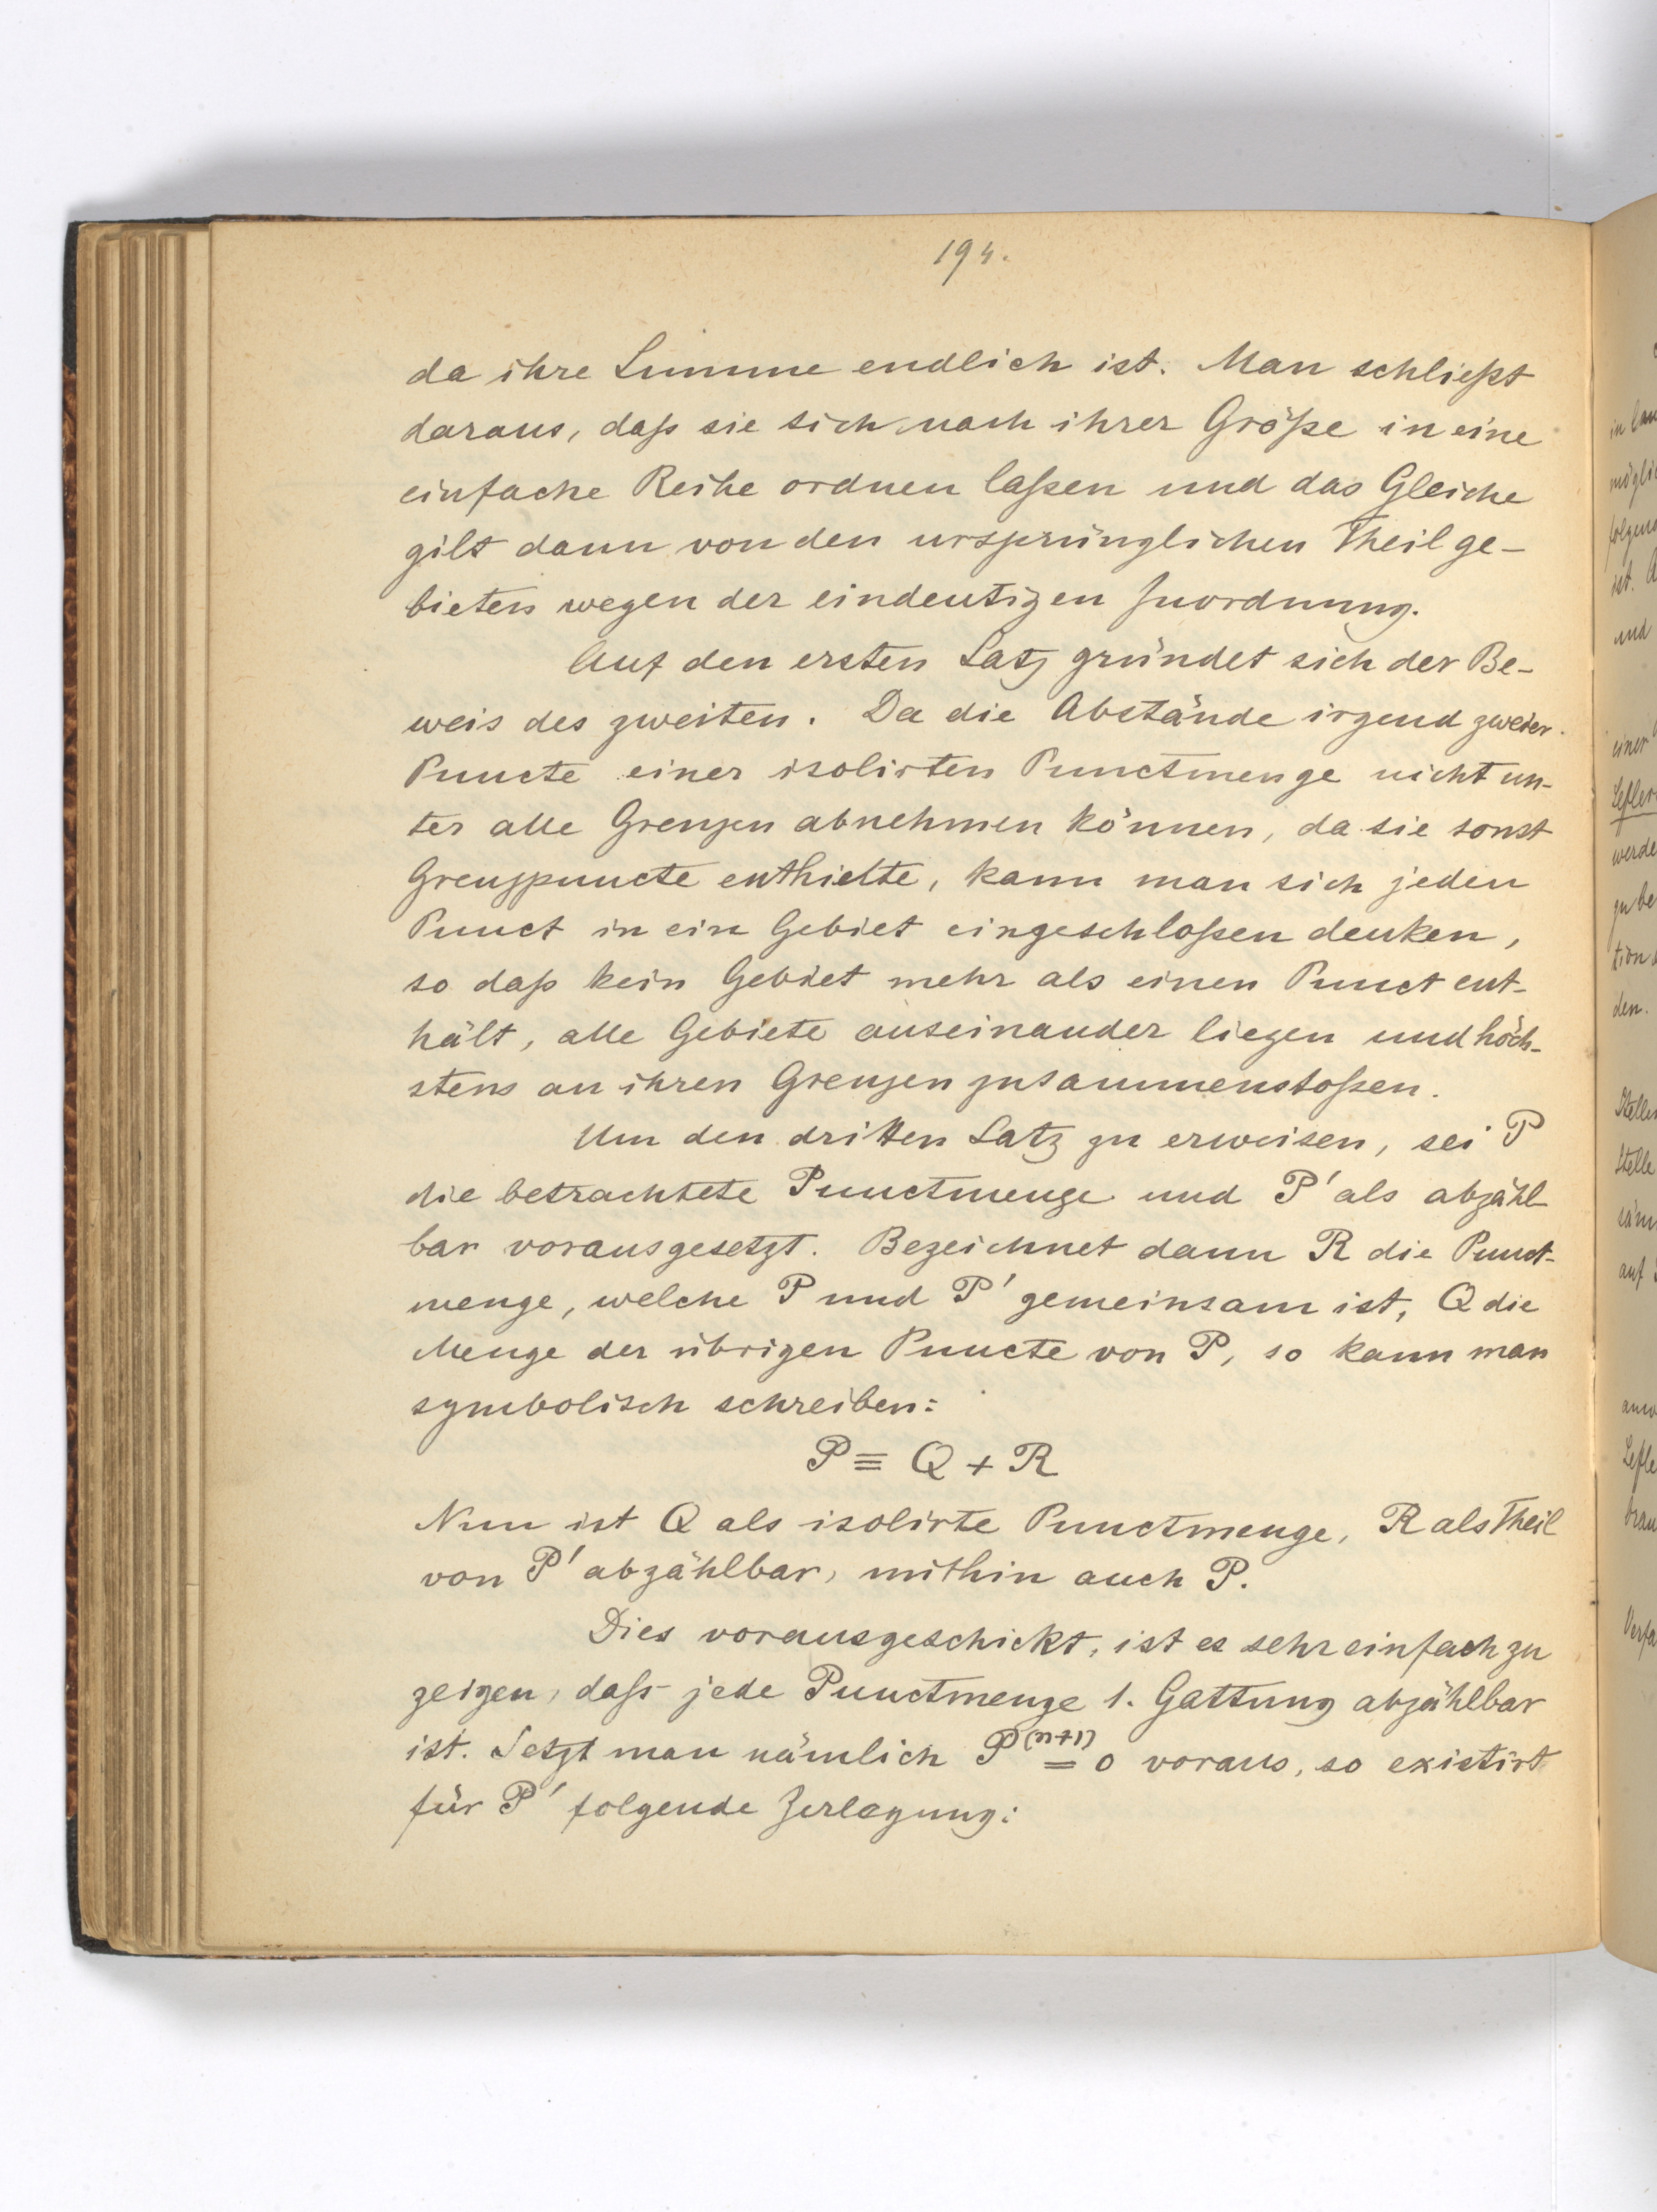 194.
da ihre Summe endlich ist. Man schließt
daraus, daß sie sich nach ihrer Größe in eine
einfache Reihe ordnen laßen und das Gleiche
gilt dann von den ursprünglichen Theilge-
bieten wegen der eindeutigen Zuordnung.
Auf den ersten Satz gründet sich der Be-
weis des zweiten. Da die Abstände irgend zweier
Puncte einer isolirten Punctmenge nicht un-
ter alle Grenzen abnehmen können, da sie sonst
Grenzpuncte enthielte, kann man sich jeden
Punct in ein Gebiet eingeschloßen denken,
so daß kein Gebiet mehr als einen Punct ent-
hält, alle Gebiete auseinander liegen und höch-
stens an ihren Grenzen zusammenstoßen.
Um den dritten Satz zu erweisen, sei P
die betrachtete Punctmenge und P' als abzähl-
bar vorausgesetzt. Bezeichnet dann R die Punct-
menge, welche P und P' gemeinsam ist, Q die
Menge der übrigen Puncte von P, so kann man
symbolisch schreiben:
P ≡ Q + R
Nun ist Q als isolirte Punctmenge, R als Theil
von P' abzählbar, mithin auch P.
Dies vorausgeschickt, ist es sehr einfach zu
zeigen, daß jede Punctmenge 1. Gattung abzählbar
ist. Setzt man nämlich P^(n+1) = 0 voraus, so existirt
für P' folgende Zerlegung:
in
ist.
und
einer
werde
zu be
den.
Stelle
auf